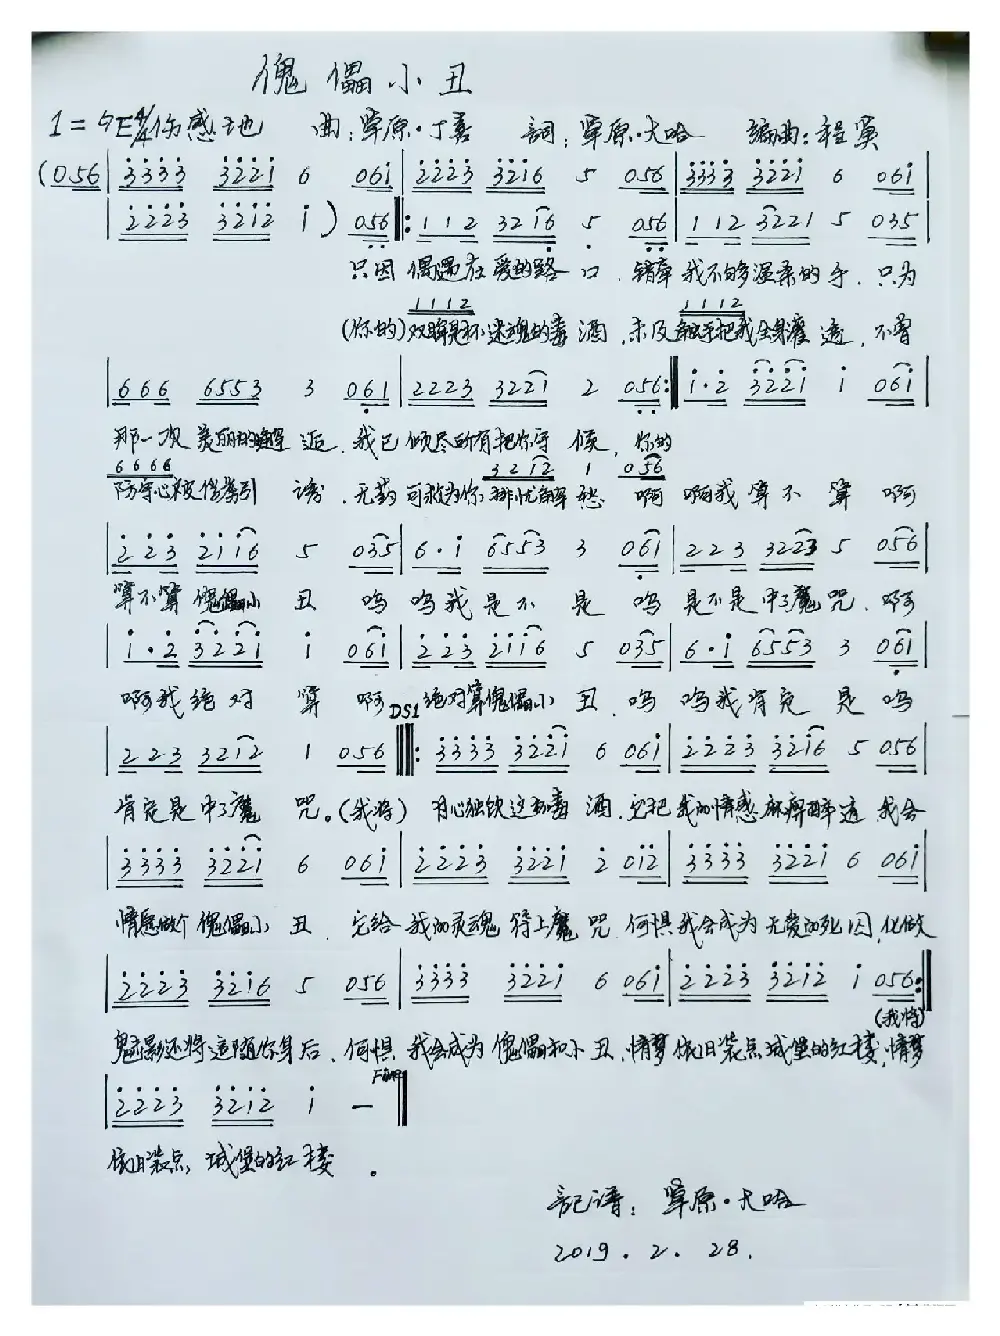 傀儡小丑
1=♮E 4/4 伤感地 曲:草原·丁美 詞:草原·大哈 编曲:程寅
(056 | 3333 3221 6 061 | 2223 3216 5 056 | 3333 3221 6 061 |
| 2223 3212 1 ) 056 ‖: 112 3216 5 056 | 112 3221 5 035 |
只因 偶遇在爱的路口 错牵我不够温柔的手 只为
1112 1112
(你的) 双眸 迷魂的毒酒 未及 把我全身灌透 不曾
| 666 6553 3 061 | 2223 3221 2 056 :‖ 1·2 3221 1 061 |
那一次美丽的邂逅 我已倾尽所有把你守候 你的
6666 3212 1 056
防守心 引诱 无药可救为你排忧解愁 啊 啊我算不算 啊
| 223 2116 5 035 | 6·1 6553 3 061 | 223 3223 5 056 |
算不算傀儡小丑 呜 呜我是不是 呜 是不是中了魔咒 啊
| 1·2 3221 1 061 | 223 2116 5 035 | 6·1 6553 3 061 |
啊我绝对算 啊 绝对算傀儡小丑 呜 呜我肯定是 呜
DS1
| 223 3212 1 056 ‖: 3333 3221 6 061 | 2223 3216 5 056 |
肯定是中了魔咒。(我将) 甘心独饮这杯毒酒 它把我的情感麻痹醉透 我会
| 3333 3221 6 061 | 2223 3221 2 012 | 3333 3221 6 061 |
情愿做个傀儡小丑 它给我的灵魂符上魔咒 何惧我会成为无爱的死囚 化做
| 2223 3216 5 056 | 3333 3221 6 061 | 2223 3212 1 056 :‖
(我将)
魅影还将追随你身后 何惧 我会成为傀儡和小丑 情梦依旧装点城堡的红楼 情梦
Fine
| 2223 3212 1 — ‖
依旧装点城堡的红楼。
記谱:草原·大哈
2019.2.28.